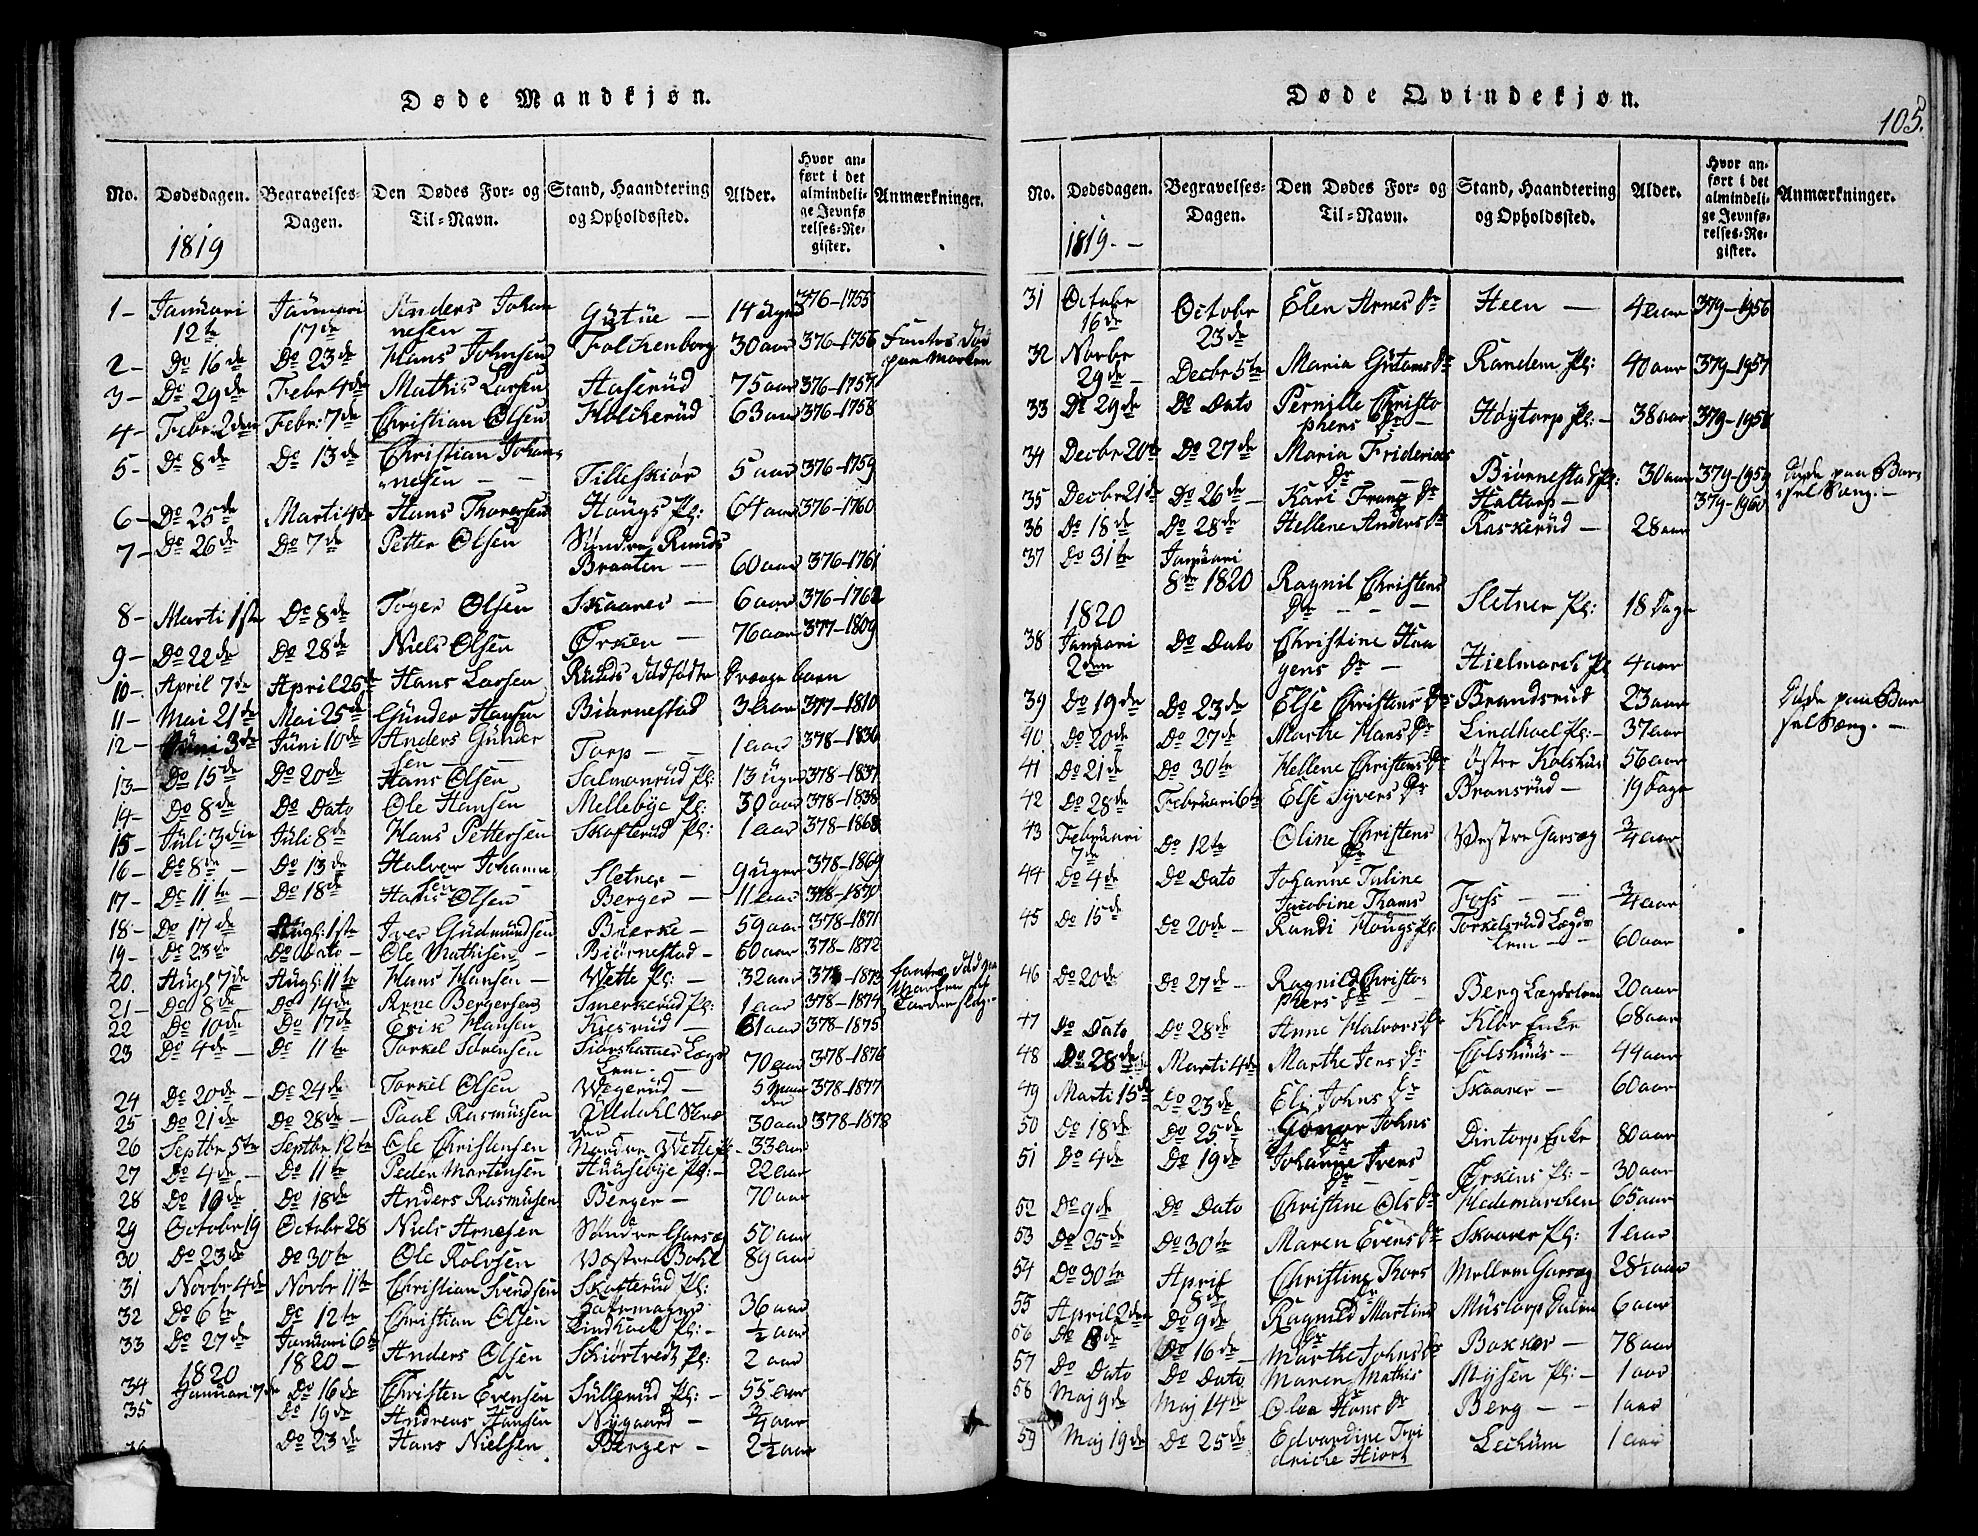 Døde Mandkjøn.
No. Dødsdagen. Begravelses-Dagen. Den Dødes For- og Til-Navn. Stand, Haandtering og Opholdssted. Alder. Hvor anført i det almindelige Jevnførelses-Register. Anmærkninger.
1819
1 – Januari 12te Januari 17de Anders Johannesen Gütüe – 14 Uger 376-1755
2 – Do 16de Do 23de Hans Johnsen Folckenborg 30 aar 376-1756 Fantes død paa Marken
3 – Do 29de Febr 4de Mathis Larsen Aaserüd 75 aar 376-1757
4 – Febr: 2den Febr: 7de Christian Olsen Holckerüd 63 aar 376-1758
5 – Do 8de Do 13de Christian Johannesen – – Tilleskiør 5 aar 376-1759
6 – Do 25de Marti 4de Hans Thoversen Haugs Pl: 64 aar 376-1760
7 – Do 26de Do 7de Petter Olsen Søndre Runds Braaten – 60 aar 376-1761
8 – Marti 1ste Do 8de Toger Olsen Skaarer – 6 aar 376-1762
9 – Do 22de Do 28de Niels Olsen Ørken – 76 aar 377-1809
10 – April 7de April 25de Hans Larsen Runds dødfødte Drænge barn
11 – Mai 21de Mai 25de Günder Hansen Biørnestad 3 aar 377-1810
12 – Jüni 3de Jüni 10de Anders Gündersen – Torp – – 1 aar 378-1836
13 – Do 15de Do 20de Hans Olsen Salmonrüd Pl: 13 Uger 378-1837
14 – Do 8de Do Dato Ole Hansen Mellebÿe Pl: 30 aar 378-1838
15 – Jüli 3die Jüli 8de Hans Pettersen Skofterüd Pl: 1 aar 378-1868
16 – Do 8de – Do 13de Halvor Johannesen Sletner – 9 Uger 378-1869
17 – Do 11te – Do 18de Hans Olsen Berger – 11 aar 378-1870
18 – Do 17de Augs: 1ste Iver Gudmundsen Bierke – 59 aar 378-1871
19 – Do 23de Do Dato – Ole Mathisen – Biørnestad – 60 aar 378-1872
20. Augs 7de Augs: 11te Hans Hansen – Vette Pl: – 32 aar 378-1873 fantes død paa Marken af Tordenslag –
21 – Do 8de Do 14de Arne Bergersen Smerkerüd Pl: 1 aar 378-1874
22 Do 10de Do 17de Erik Hansen Kiesrüd – 61 aar 378-1875
23 Do 4de – Do 11te Torkel Sørensen Lægdslem – 70 aar 378-1876
24 Do 20de – Do 24de Torkel Olsen Wegerüd – 5 378-1877
25 Do 21de Do 28de – Paal Rasmussen 30 aar 378-1878
26 Septbr 5te Septbr 12te Ole Christensen Nordre Wette Pl – 33 aar
27 Do 4de – Do 11te Peder Martensen Huusebÿe Pl: – 22 aar
28 Do 19de Do 18de Anders Rasmusen Berger – 70 aar
29 Octobr 19 Octobr 28 Niels Arnesen Søndre Garseg 50 aar
30 Do 23de Do 30te Ole Rolvsen Vestre Bohl 89 aar
31 Novbr 4de Novbr 11te Christian Svendsen Skofterüd Pl:
32 Do 6te Do 12te Christian Olsen 36 aar
33 Do 27de Januari 6te 1820 – Anders Olsen Lindhoel Pl: – ½ aar
1820
Skiørtvedt Pl: 2 aar
34 Januari 7de Do 16de Christen Evensen Süllerüd Pl: – 55 aar
35 Do 19de Andreas Hansen Nÿgaard – ¾ aar
Do 23de Hans Nielsen Berger – 2½ aar
Døde Qvindekjøn.
105.
No. Dødsdagen. Begravelses-Dagen. Den Dødes For- og Til-Navn. Stand, Haandtering og Opholdssted. Alder. Hvor anført i det almindelige Jevnførelses-Register. Anmærkninger.
1819. –
31 Octobr 16de Octobr 23de Elen Arnes Dr Heen – 4 aar 379-1956
32 Novbr 29de – Decbr 5te Maria Gütams Dr Randem Pl: 40 aar 379-1957
33 Do 29de Do Dato Pernille Christophers Dr – Høÿtorp Pl: – 38 aar 379-1958
34 Decbr 20de Do 27de Maria Friderics Dr – Biørnestad Pl: 30 aar 379-1959 Døde paa Barselsæng. –
35 Decbr 21de Do 26de – Kari Franz Dr Haltorp – 379-1960
36 Do 18de Do 28de Hellene Anders Dr Raskerüd – 28 aar
37 Do 31te Januari 8de 1820 Ragnil Christens Dr – – – Sletner Pl: 18 Dage
1820
38 Januari 2den Do Dato Christine Haagens Dr – Hielmarck Pl 4 aar
39 Do 19de Do 23de Else Christens Dr Brandsrüd 23 aar Døde paa Barselsæng. –
40 Do 20de Do 27de Marthe Hans Dr Lindhoel Pl: – 37 aar
41 Do 21de Do 30te Hellene Christens Dr Østre Kolshus 56 aar
42 Do 28de Februari 6te Else Sÿvers Dr Bransrüd – 19 Dage
43 Februari 7de Do 12te Oline Christens Dr Vestre Garseg ¾ aar
44 Do 4de Do Dato Johanne Tuline Jacobine Thams Foss – – ¾ aar
45 Do 15de Do 20de – Randi Hougs Pl: Torkelsrüd Lægdslem – 60 aar
46 Do 20de Do 27de – Ragnild Christophers Dr – Berg Lægdslem 20 aar
47 Do Dato Do 28de Anne Halvors Dr Kløv Enke 68 aar
48 Do 28de Marti 4de Marthe Jens Dr Colshuus – 44 aar
49 Marti 15de Do 23de Eli Johns Dr Skaarer – 60 aar
50 Do 18de Do 25de Gonor Johns Dr Dintorp Enke 80 aar
51 Do 4de Do 19de Johanne Ivers Dr – Ørkens Pl: – 30 aar
52 Do 9de Do Dato Christine Ols Dr Hedemarcken 65 aar
53 Do 25de Do 30te Maren Evens Dr Skaarer Pl: 1 aar
54 Do 30te April 8de Christine Thors Dr Mellem Garseg 28½ aar
55 April 2den Do 9de Ragnild Martins Dr Müstorp 6 aar
56 Do 8de Do 16de – Marthe Johns Dr Bakker – 78 aar
57 Do Dato Do Dato Maren Mathis Dr Mÿsen Pl: – 1 aar
58 Maj 9de Maj 14de Olea Hans Dr Berg – – 1 aar
59 Maj 19de Do 25de Edvardine Fridriche Hiort Lechüm 1 aar